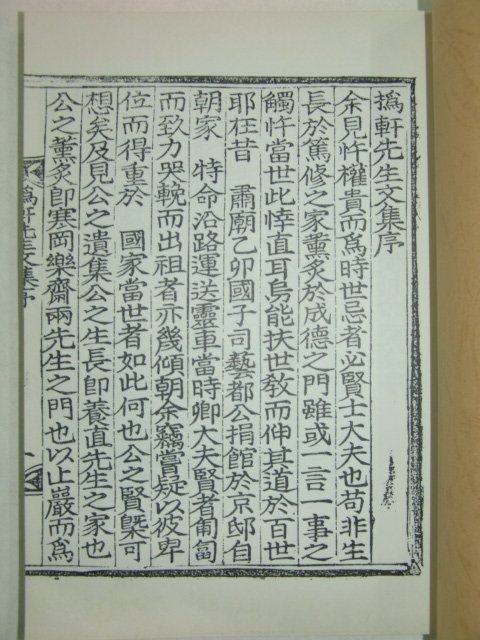 撝軒先生文集序
余見忤權貴而爲時世忌者必賢士大夫也苟非生
長於篤修之家薰炙於成德之門雖或一言一事之
觸忤當世此悻直耳烏能扶世敎而伸其道於百世
耶在昔 肅廟乙卯國子司藝都公捐館於京邸自
朝家 特命沿路運送靈車當時卿大夫賢者匍匐
而致力哭輓而出祖者亦幾傾朝余竊嘗疑以彼卑
位而得重於 國家當世者如此何也公之賢槩可
想矣及見公之遺集公之生長卽養直先生之家也
公之薰炙卽寒岡樂齋兩先生之門也以止嚴而爲
撝軒先生文集序
一